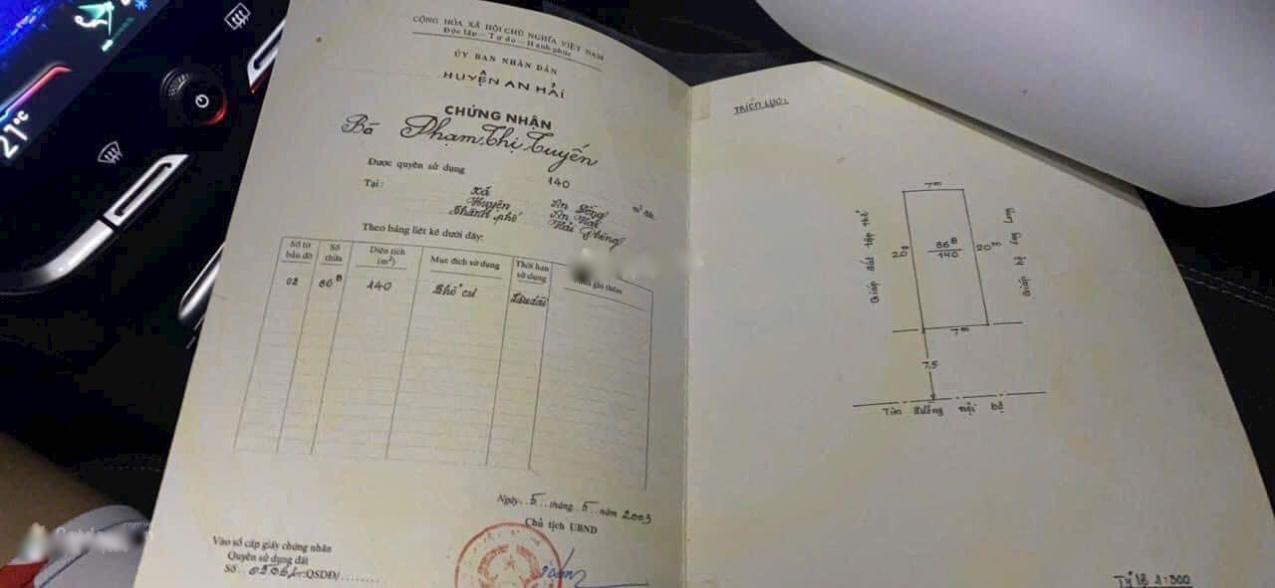 27°C
CỘNG HÒA XÃ HỘI CHỦ NGHĨA VIỆT NAM
Độc lập - Tự do - Hạnh phúc
ỦY BAN NHÂN DÂN
HUYỆN AN HẢI
CHỨNG NHẬN
Bà Phạm Thị Tuyến
Được quyền sử dụng 140
Tại: xã An Đồng
Huyện An Hải
Thành phố Hải Phòng
Theo bảng liệt kê dưới đây:
Số tờ bản đồ
Số thửa
Diện tích (m²)
Mục đích sử dụng
Thời hạn sử dụng
ghi thêm
02 86B 140 Thổ cư Lâu dài
Ngày 5 tháng 5 năm 2003
Chủ tịch UBND
Vào sổ cấp giấy chứng nhận
Quyền sử dụng đất
Số QSDĐ/
TRÍCH LỤC
7m
Giáp đất tập thể
20
86B
140
20
Giáp hộ
7m
7,5
Tim đường nội bộ
Tỷ lệ 1:500